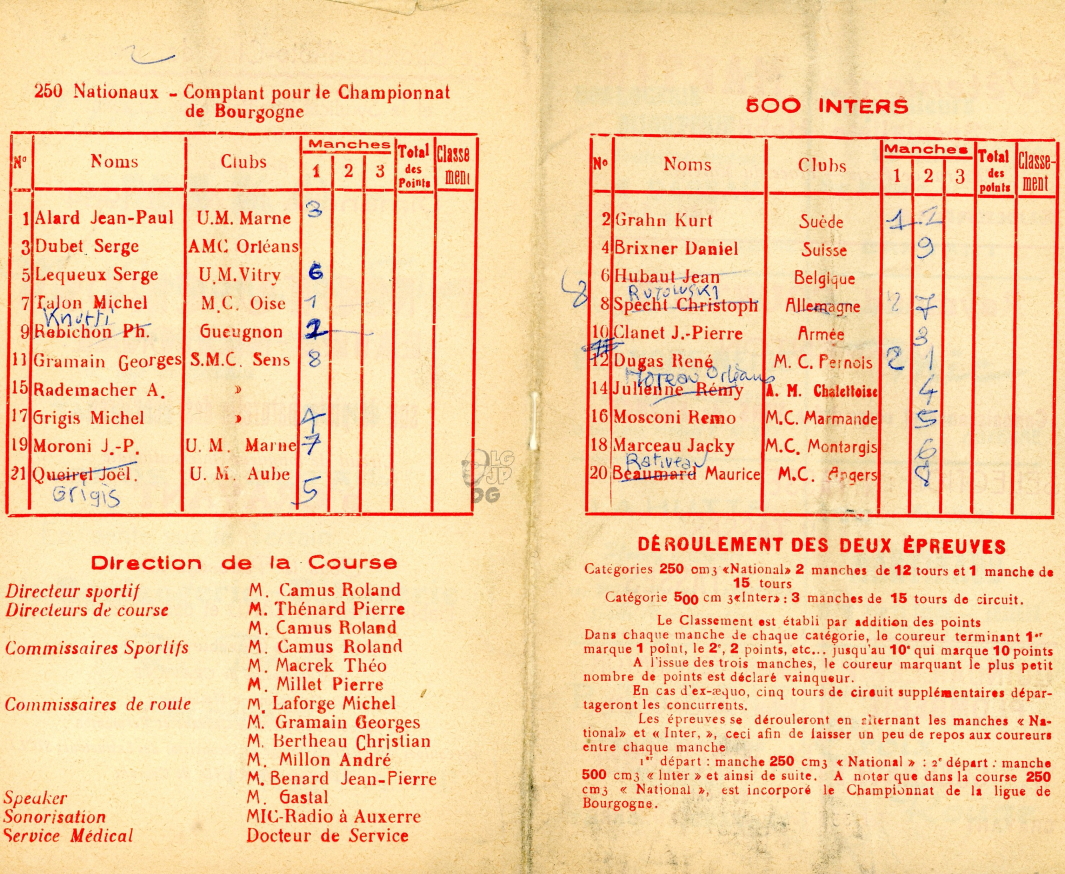 250 Nationaux - Comptant pour le Championnat
de Bourgogne
Nº Noms Clubs Manches 1 2 3 Total des Points Classement
1 Alard Jean-Paul U.M. Marne 3
3 Dubet Serge AMC Orléans
5 Lequeux Serge U.M.Vitry 6
7 Talon Michel M.C. Oise 1
Knutti
9 Rabichon Ph. Gueugnon 2
11 Gramain Georges S.M.C. Sens 8
15 Rademacher A. »
17 Grigis Michel » 4
19 Moroni J.-P. U. M. Marne 7
21 Queirel Joël. U. M. Aube
Grigis 5
Direction de la Course
Directeur sportif M. Camus Roland
Directeurs de course M. Thénard Pierre
M. Camus Roland
Commissaires Sportifs M. Camus Roland
M. Macrek Théo
M. Millet Pierre
Commissaires de route M. Laforge Michel
M. Gramain Georges
M. Bertheau Christian
M. Millon André
M. Benard Jean-Pierre
Speaker M. Gastal
Sonorisation MIC-Radio à Auxerre
Service Médical Docteur de Service
500 INTERS
Nº Noms Clubs Manches 1 2 3 Total des points Classe-ment
2 Grahn Kurt Suède 1
4 Brixner Daniel Suisse 9
6 Hubaut Jean Belgique
8 Specht Christoph Allemagne 2 7
10 Clanet J.-Pierre Armée 3
12 Dugas René M. C. Pernois 2 1
Moreau Orléans
14 Julienne Rémy A. M. Chalettoise 4
16 Mosconi Remo M.C. Marmande 5
18 Marceau Jacky M.C. Montargis 6
20 Beaumard Maurice M.C. Angers 8
DÉROULEMENT DES DEUX ÉPREUVES
Catégories 250 cm3 «National» 2 manches de 12 tours et 1 manche de
15 tours
Catégorie 500 cm 3«Inter»: 3 manches de 15 tours de circuit.
Le Classement est établi par addition des points
Dans chaque manche de chaque catégorie, le coureur terminant 1er
marque 1 point, le 2e, 2 points, etc... jusqu'au 10e qui marque 10 points
A l'issue des trois manches, le coureur marquant le plus petit
nombre de points est déclaré vainqueur.
En cas d'ex-æquo, cinq tours de circuit supplémentaires dépar-
tageront les concurrents.
Les épreuves se dérouleront en alternant les manches « Na-
tional» et « Inter, », ceci afin de laisser un peu de repos aux coureurs
entre chaque manche
1er départ : manche 250 cm3 « National » : 2e départ : manche
500 cm3 « Inter » et ainsi de suite. A noter que dans la course 250
cm3 « National », est incorporé le Championnat de la ligue de
Bourgogne.